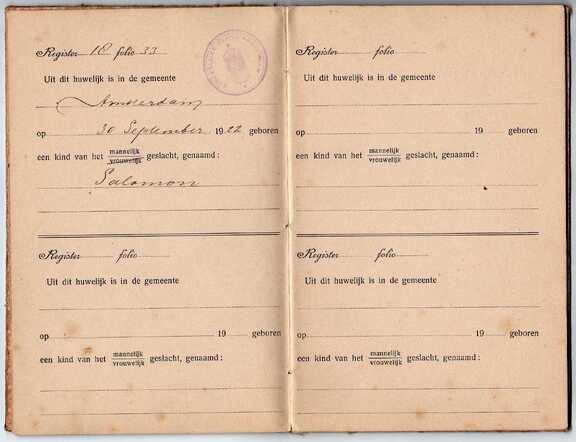 Register 1E folio 33
Uit dit huwelijk is in de gemeente
Amsterdam
op 30 September 1922 geboren
een kind van het mannelijk vrouwelijk geslacht, genaamd:
Salomon
Register folio
Uit dit huwelijk is in de gemeente
op 19 geboren
een kind van het mannelijk vrouwelijk geslacht, genaamd:
Register folio
Uit dit huwelijk is in de gemeente
op 19 geboren
een kind van het mannelijk vrouwelijk geslacht, genaamd:
Register folio
Uit dit huwelijk is in de gemeente
op 19 geboren
een kind van het mannelijk vrouwelijk geslacht, genaamd: